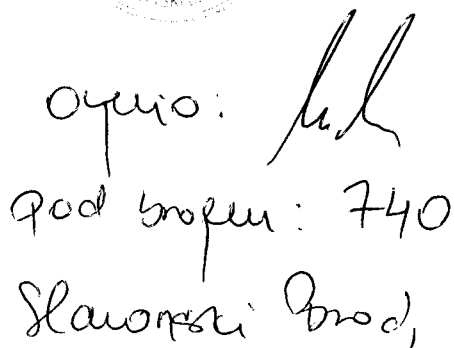 Ovjerio:
pod brojem: 740
Slavonski Brod,